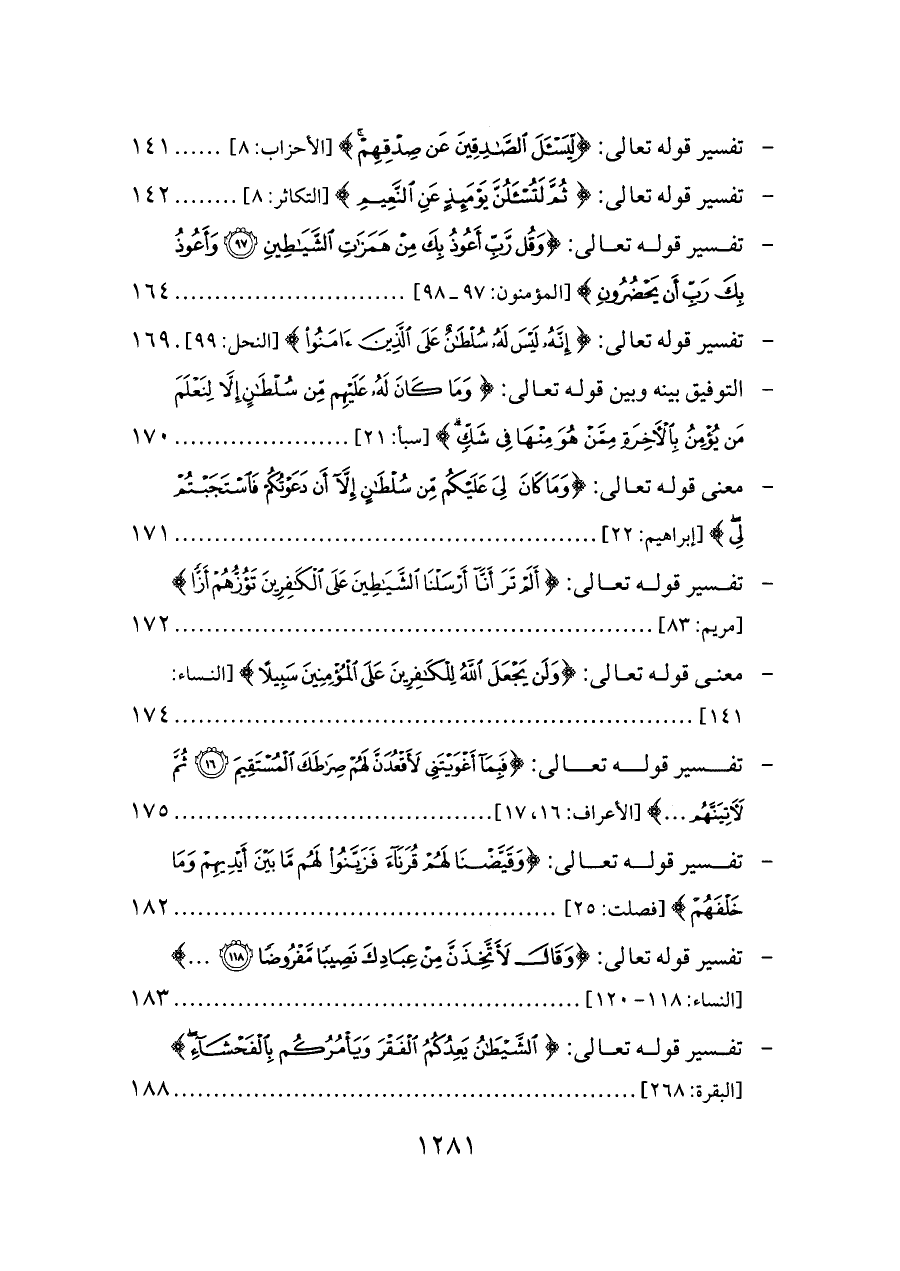 - تفسير قوله تعالى: ﴿لِّيَسْـَٔلَ ٱلصَّـٰدِقِينَ عَن صِدْقِهِمْ ۚ﴾ [الأحزاب: ٨] ...... ١٤١
- تفسير قوله تعالى: ﴿ ثُمَّ لَتُسْـَٔلُنَّ يَوْمَئِذٍ عَنِ ٱلنَّعِيمِ ﴾ [التكاثر: ٨] ........ ١٤٢
- تفسير قولـه تعـالى: ﴿وَقُل رَّبِّ أَعُوذُ بِكَ مِنْ هَمَزَٰتِ ٱلشَّيَـٰطِينِ ﴿٩٧﴾ وَأَعُوذُ
بِكَ رَبِّ أَن يَحْضُرُونِ ﴾ [المؤمنون: ٩٧ ـ ٩٨] ............................. ١٦٤
- تفسير قوله تعالى: ﴿ إِنَّهُۥ لَيْسَ لَهُۥ سُلْطَـٰنٌ عَلَى ٱلَّذِينَ ءَامَنُوا۟ ﴾ [النحل: ٩٩] . ١٦٩
- التوفيق بينه وبين قولـه تعالى: ﴿ وَمَا كَانَ لَهُۥ عَلَيْهِم مِّن سُلْطَـٰنٍ إِلَّا لِنَعْلَمَ
مَن يُؤْمِنُ بِٱلْـَٔاخِرَةِ مِمَّنْ هُوَ مِنْهَا فِى شَكٍّ ۗ﴾ [سبأ: ٢١] ...................... ١٧٠
- معنى قولـه تعـالى: ﴿وَمَا كَانَ لِىَ عَلَيْكُم مِّن سُلْطَـٰنٍ إِلَّآ أَن دَعَوْتُكُمْ فَٱسْتَجَبْتُمْ
لِى ۖ﴾ [إبراهيم: ٢٢] ..................................................... ١٧١
- تفـسير قولـه تعـالى: ﴿ أَلَمْ تَرَ أَنَّآ أَرْسَلْنَا ٱلشَّيَـٰطِينَ عَلَى ٱلْكَـٰفِرِينَ تَؤُزُّهُمْ أَزًّا ﴾
[مريم: ٨٣] ............................................................ ١٧٢
- معنـى قولـه تعـالى: ﴿وَلَن يَجْعَلَ ٱللَّهُ لِلْكَـٰفِرِينَ عَلَى ٱلْمُؤْمِنِينَ سَبِيلًا ﴾ [النـساء:
١٤١] ................................................................. ١٧٤
- تفــسير قولــه تعــالى: ﴿فَبِمَآ أَغْوَيْتَنِى لَأَقْعُدَنَّ لَهُمْ صِرَٰطَكَ ٱلْمُسْتَقِيمَ ﴿١٦﴾ ثُمَّ
لَـَٔاتِيَنَّهُم ...﴾ [الأعراف: ١٦، ١٧] ........................................ ١٧٥
- تفـسير قولـه تعـالى: ﴿وَقَيَّضْنَا لَهُمْ قُرَنَآءَ فَزَيَّنُوا۟ لَهُم مَّا بَيْنَ أَيْدِيهِمْ وَمَا
خَلْفَهُمْ ﴾ [فصلت: ٢٥] ................................................ ١٨٢
- تفسير قوله تعالى: ﴿وَقَالَ لَأَتَّخِذَنَّ مِنْ عِبَادِكَ نَصِيبًا مَّفْرُوضًا ﴿١١٨﴾ ...﴾
[النساء: ١١٨ - ١٢٠] ................................................... ١٨٣
- تفـسير قولـه تعـالى: ﴿ ٱلشَّيْطَـٰنُ يَعِدُكُمُ ٱلْفَقْرَ وَيَأْمُرُكُم بِٱلْفَحْشَآءِ ۖ﴾
[البقرة: ٢٦٨] .......................................................... ١٨٨
١٢٨١